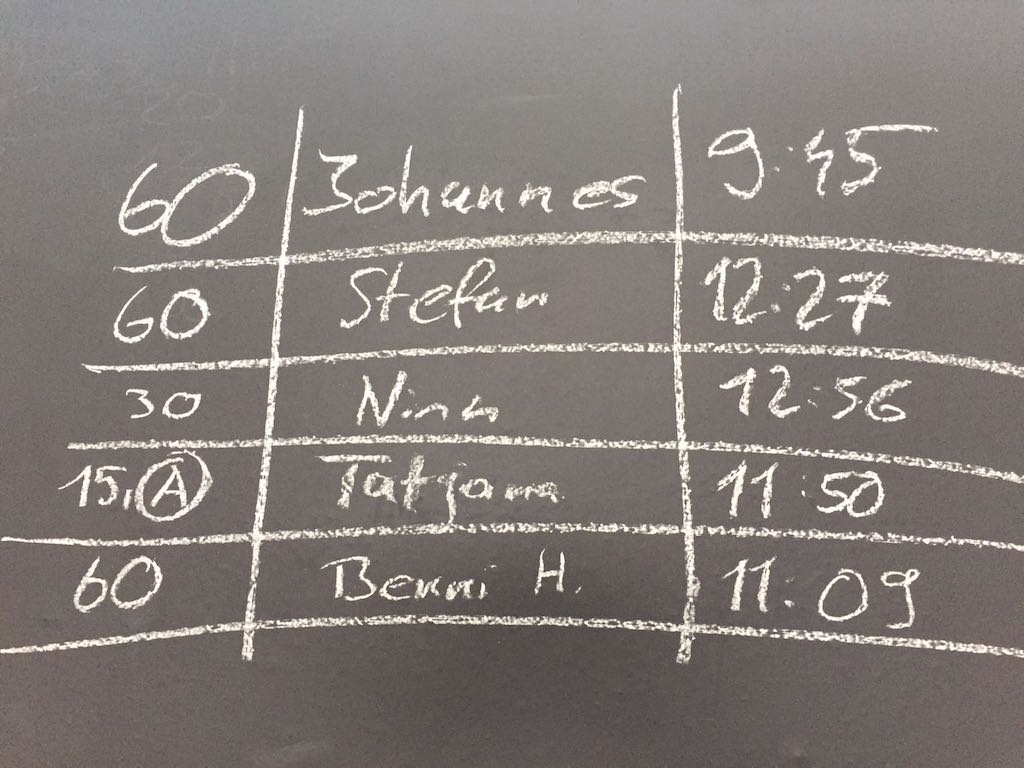 60 Johannes 9:45
60 Stefan 12:27
30 Nina 12:56
15, A Tatjana 11:50
60 Benni H. 11:09